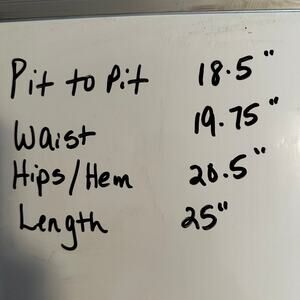 Pit to Pit 18.5"
Waist 19.75"
Hips/Hem 20.5"
Length 25"